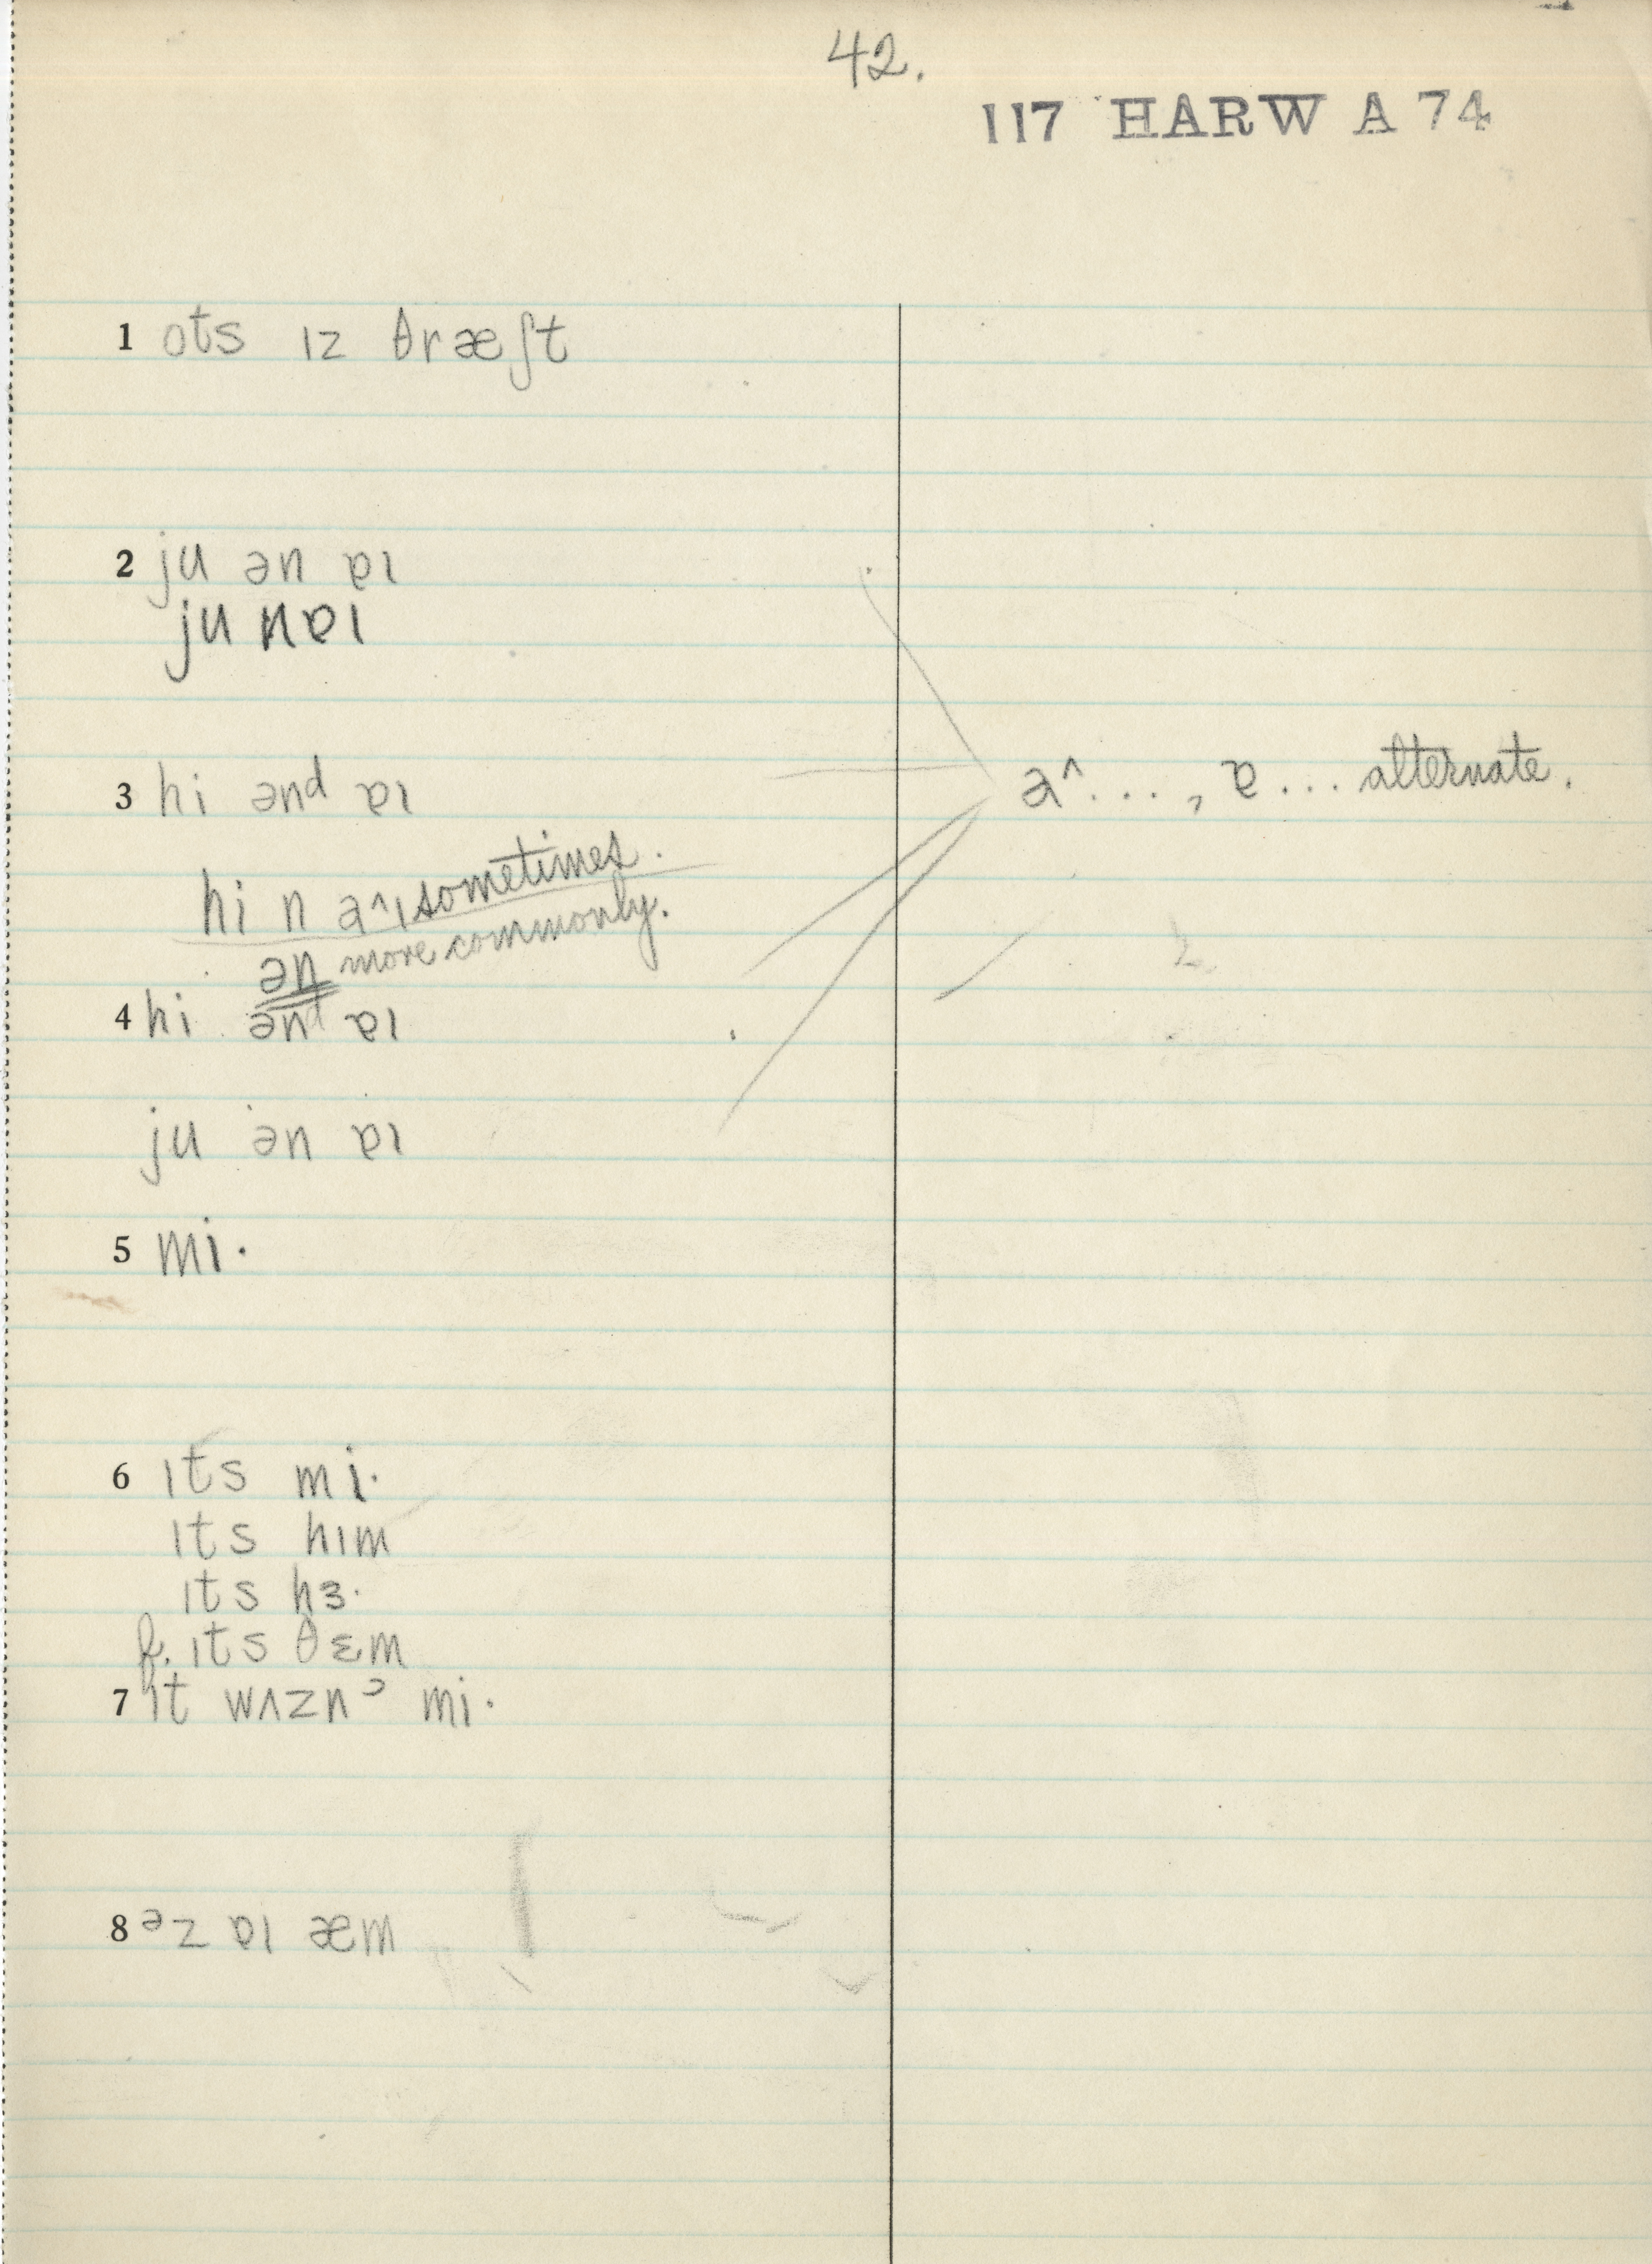 42.
117 HARW A 74
1 ots ɪz θræʃt
2 ju ən ɐɪ
ju nɐɪ
3 hi ənd ɐɪ
a^..., ɐ... alternate.
hi n a^ɪ sometimes.
ən more commonly.
4 hi ənd ɐɪ
ju ən ɐɪ
5 mi·
6 ɪts mi·
ɪts hɪm
ɪts hɜ·
f. ɪts θɛm
7 ɪt wʌznˀ mi·
8 əz ɐɪ æm